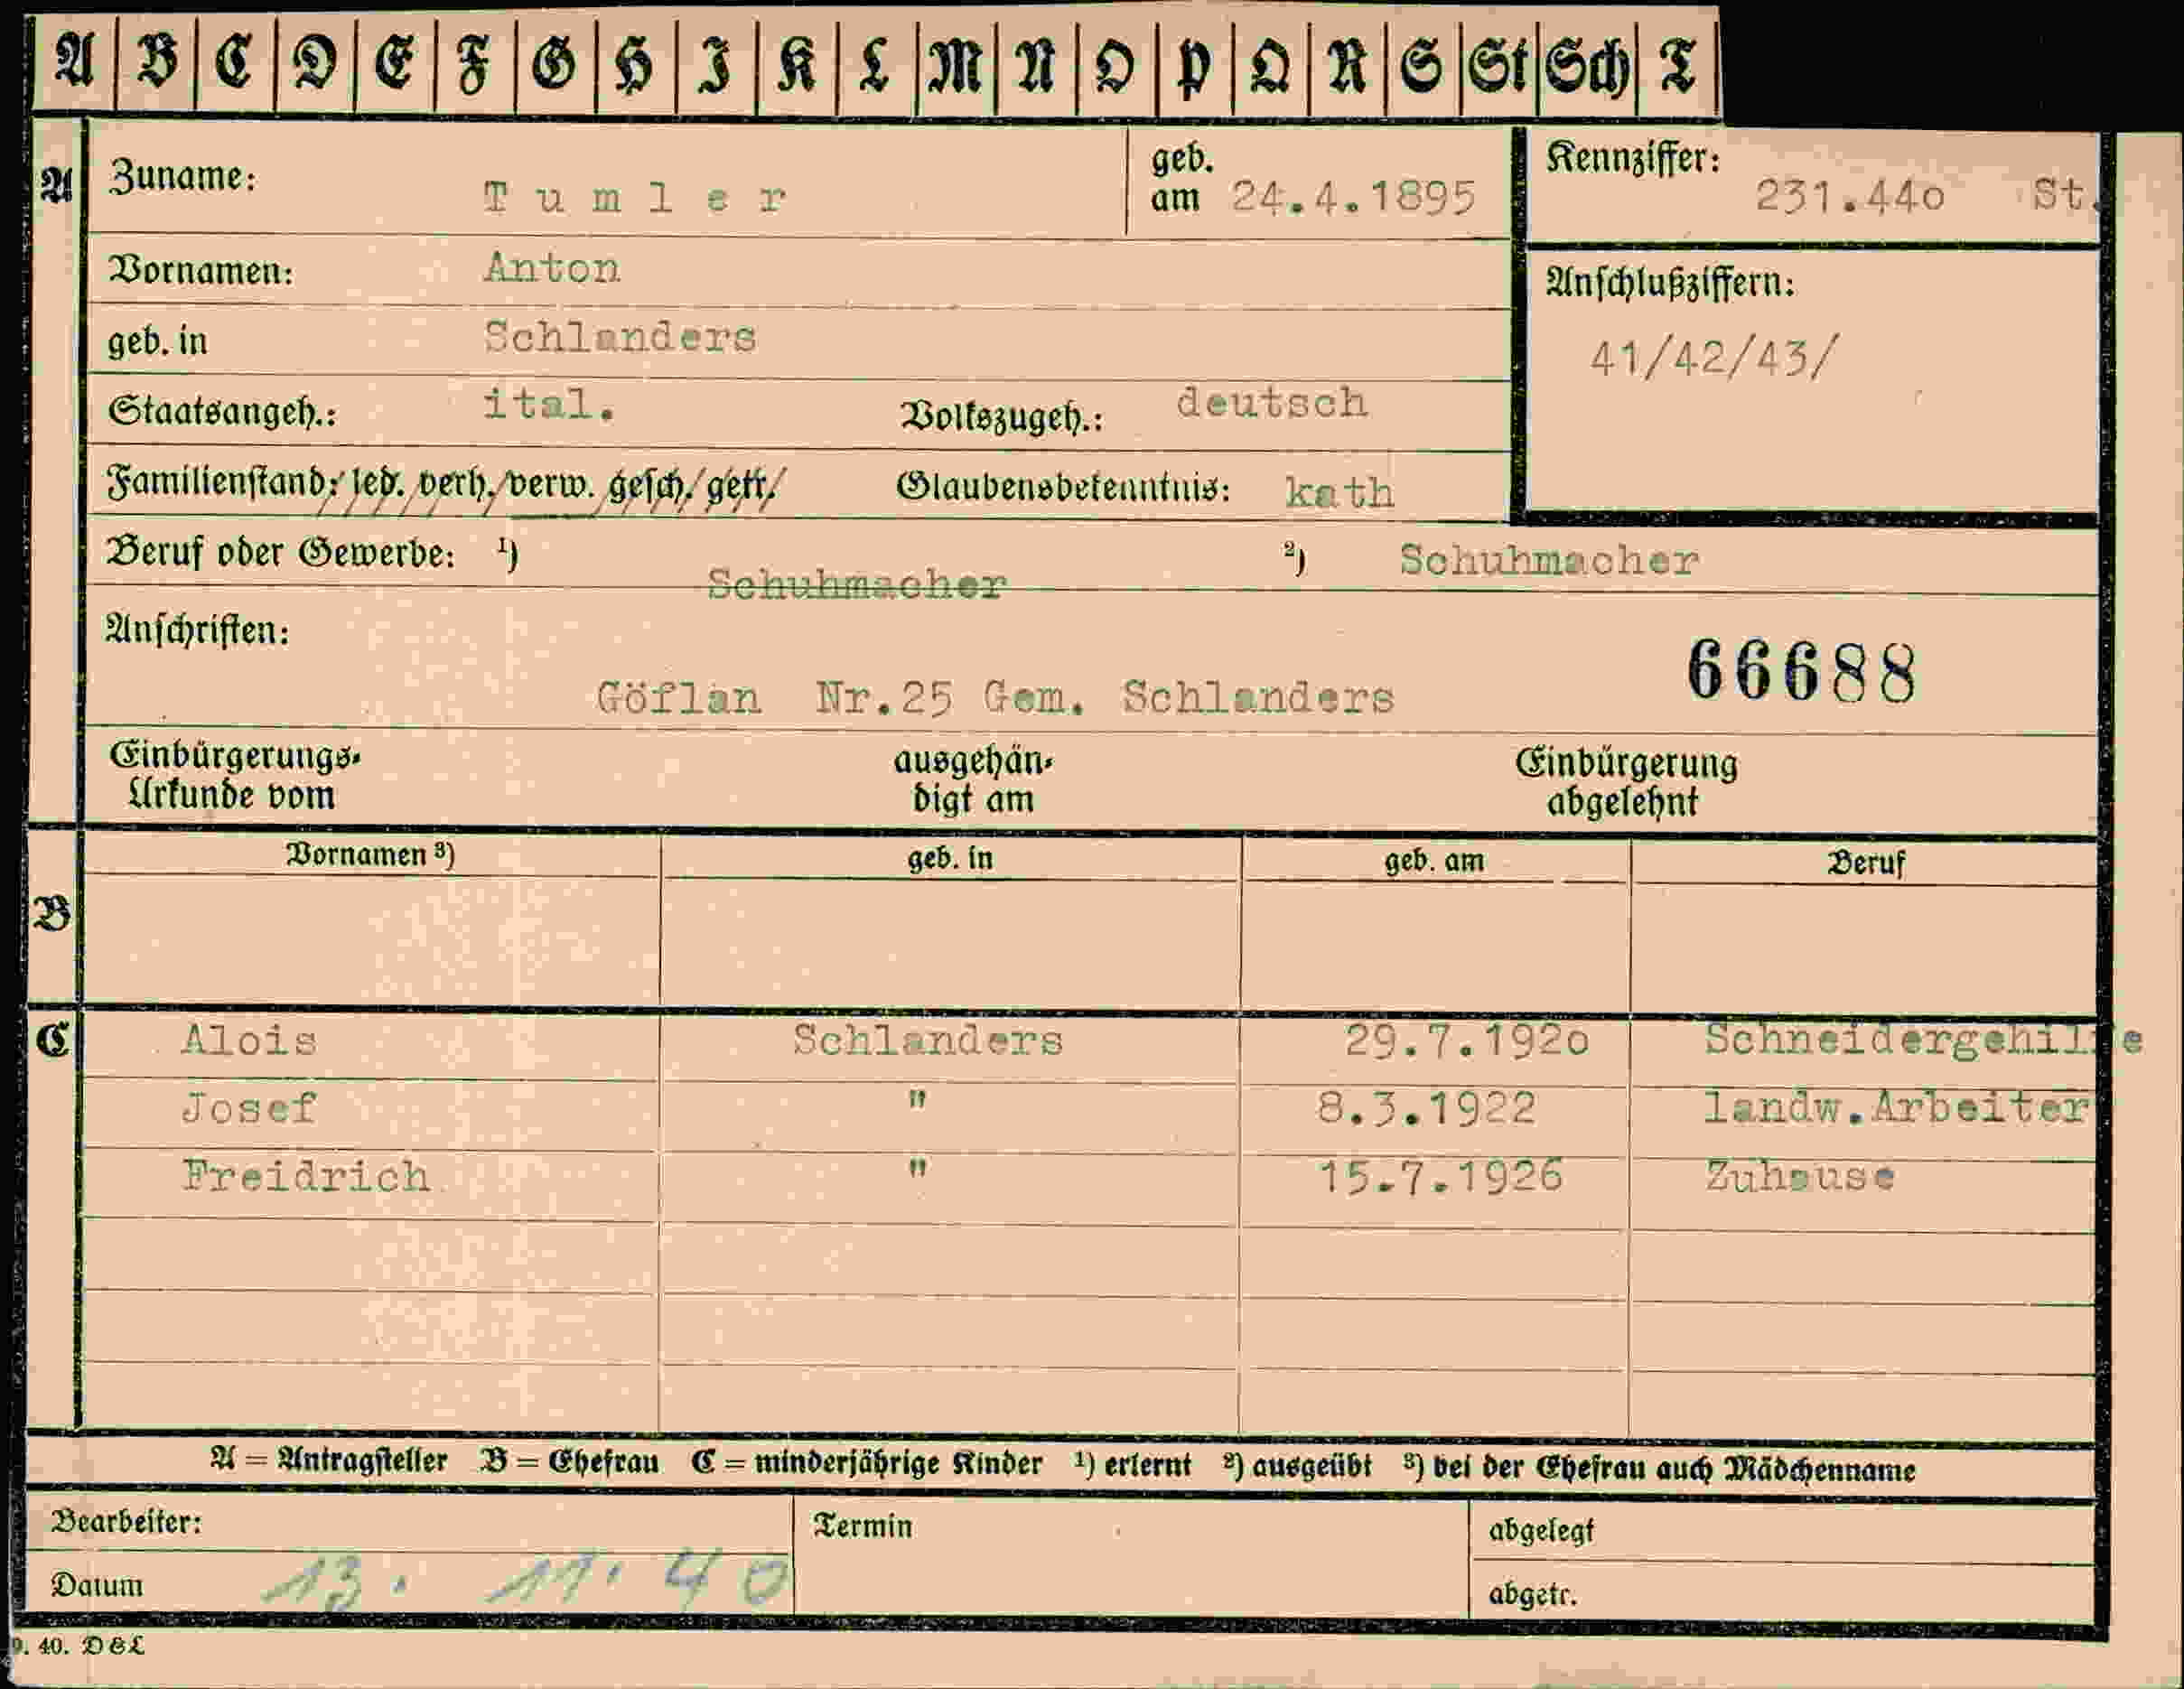 A B C D E F G H I K L M N O P Q R S St Sch T
A Zuname: Tumler geb. am 24.4.1895 Kennziffer: 231.44o St.
Vornamen: Anton
Anschlußziffern:
geb. in Schlanders
41/42/43/
Staatsangeh.: ital. Volkszugeh.: deutsch
Familienstand: led. verh. verw. gesch. getr. Glaubensbekenntnis: kath
Beruf oder Gewerbe: ¹) Schuhmacher ²) Schuhmacher
Anschriften:
66688
Göflan Nr.25 Gem. Schlanders
Einbürgerungs- ausgehän- Einbürgerung
Urkunde vom digt am abgelehnt
Vornamen ³) geb. in geb. am Beruf
B
C Alois Schlanders 29.7.192o Schneidergehilfe
Josef " 8.3.1922 landw.Arbeiter
Freidrich " 15.7.1926 Zuhause
A = Antragsteller B = Ehefrau C = minderjährige Kinder ¹) erlernt ²) ausgeübt ³) bei der Ehefrau auch Mädchenname
Bearbeiter: Termin abgelegt
Datum 13. 11. 40 abgetr.
9. 40. D&L